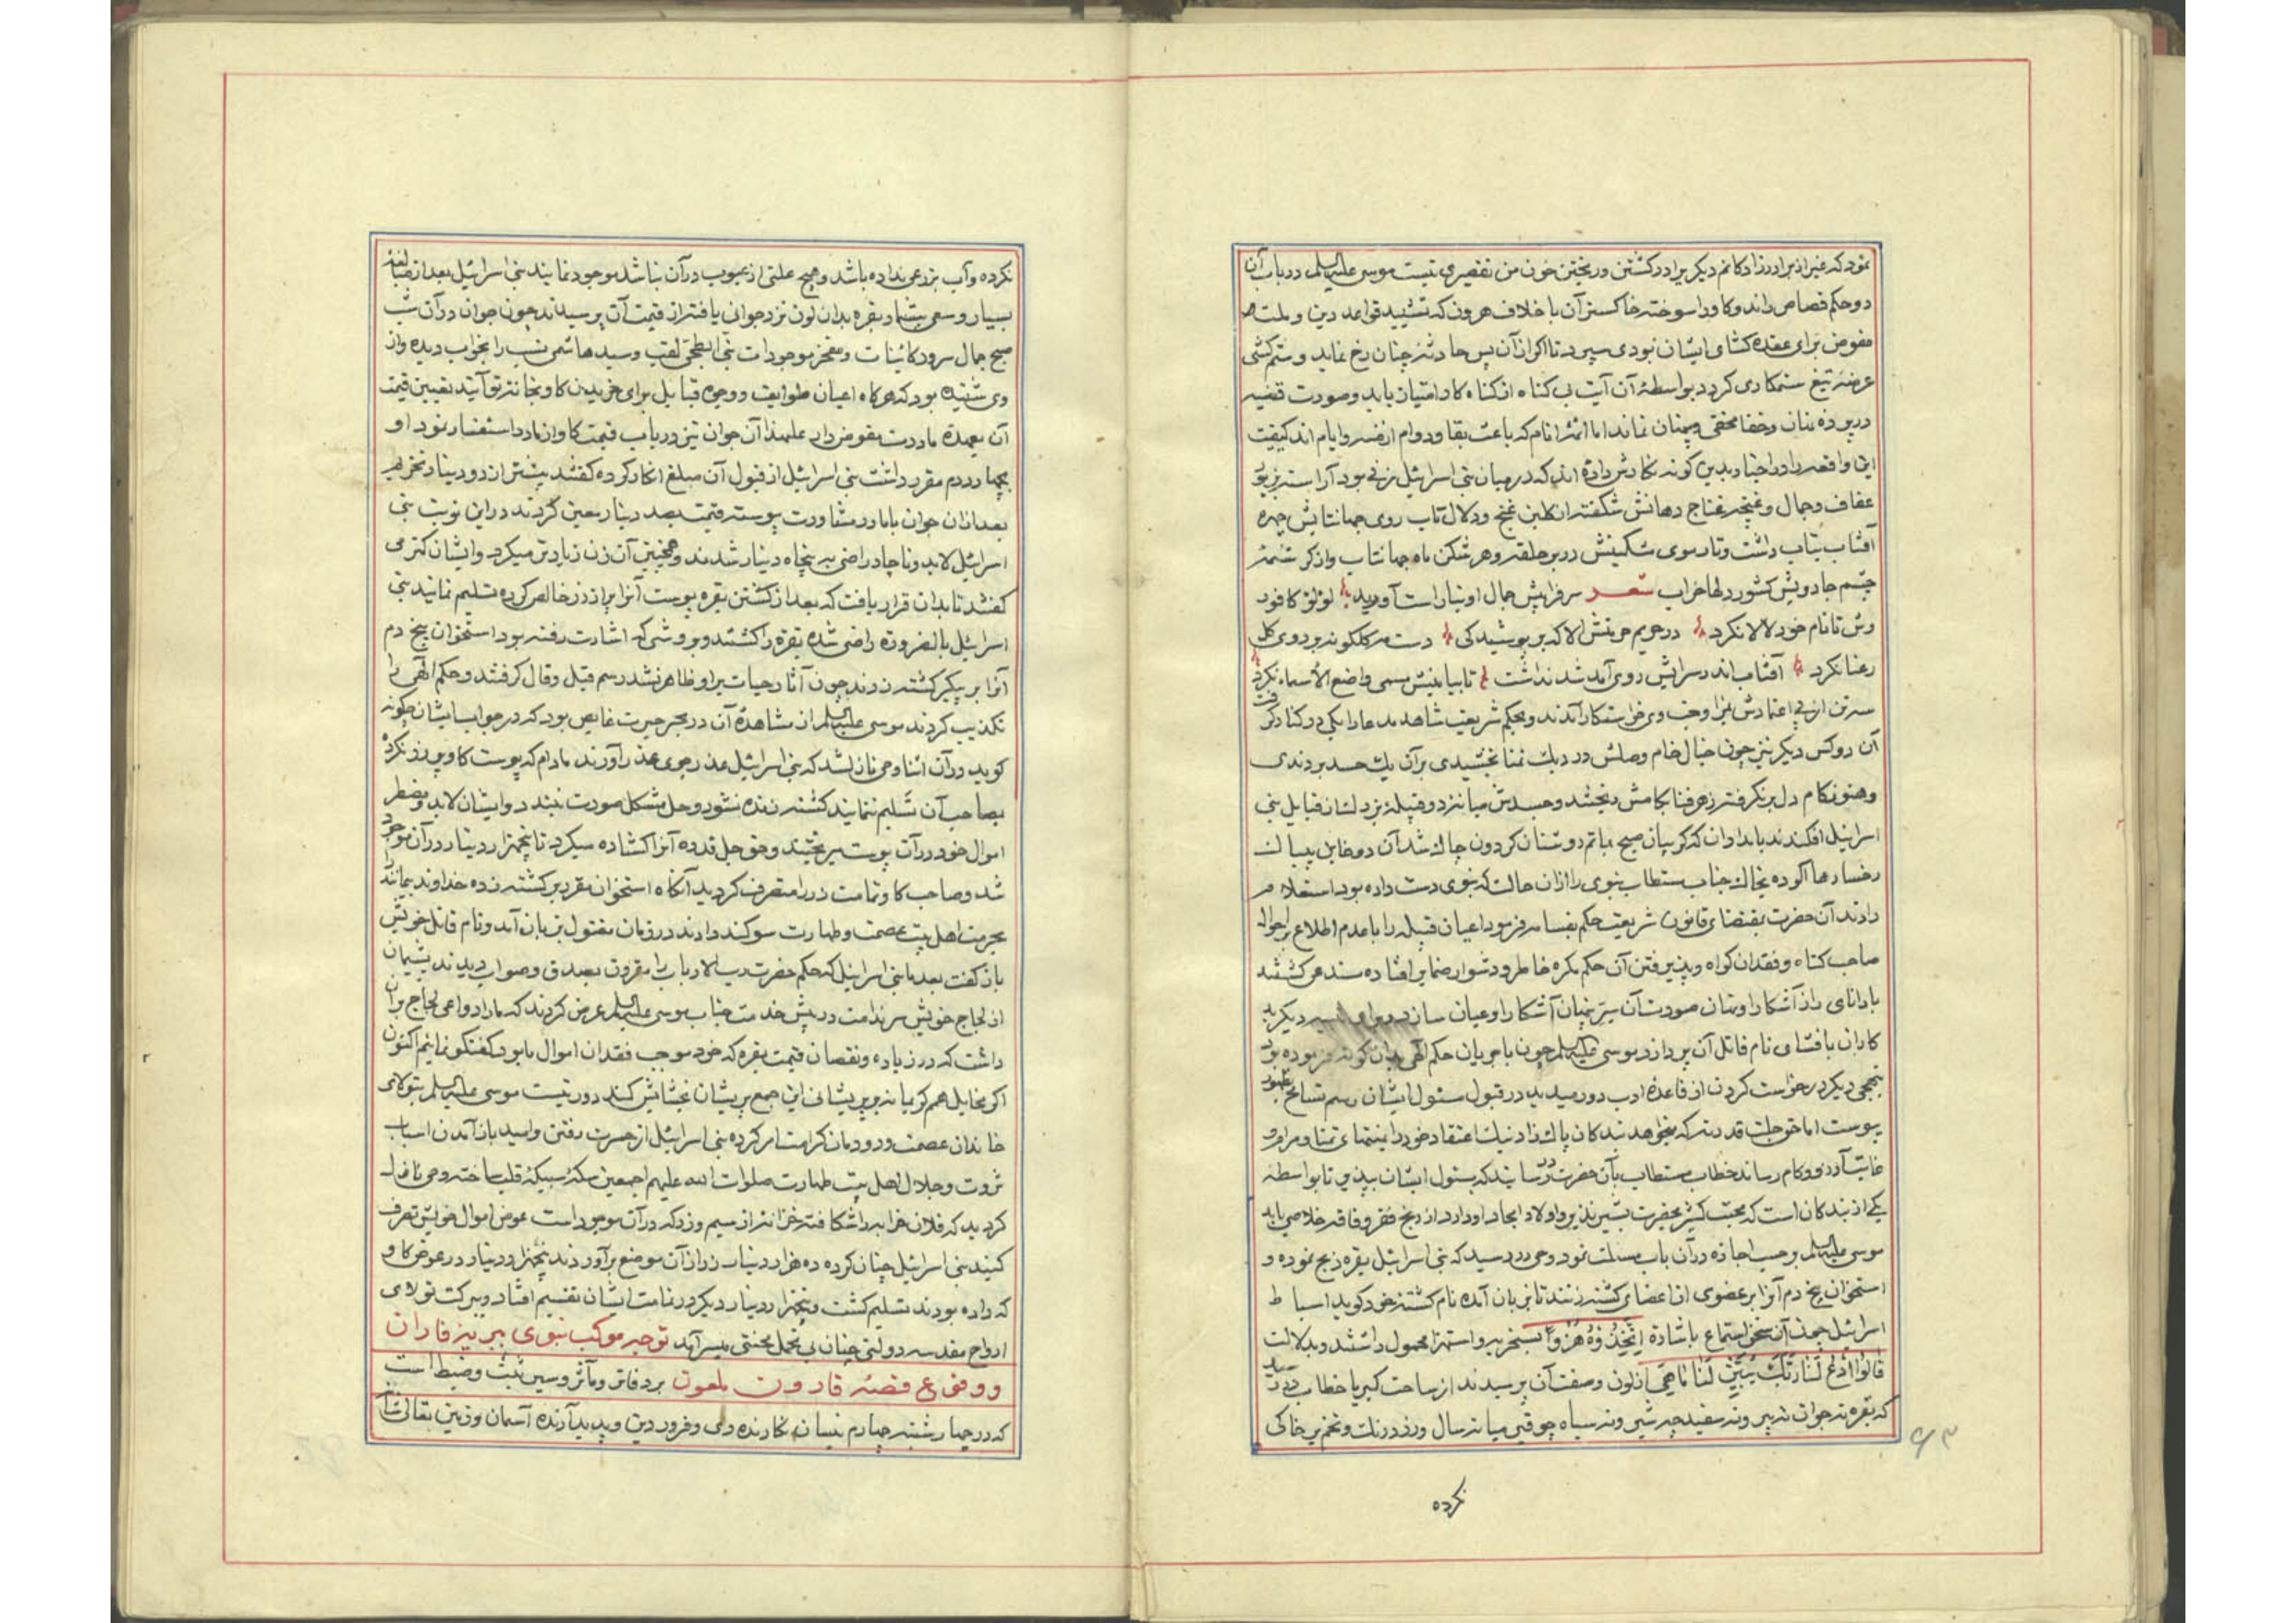 نمود که غیر از برادرزادگانم دیگر برا در کشتن و ریختن خون من تقصیری نیست موسی علیه السلم در باب آن
دو حکم قصاص راند و کاو را سوخته خاکستر آن با خلاف هرون که تشیید قواعد دین و ملت
مفوض برای عقده کشای ایشان نبودی سپرد تا اکر از آن پس حادثه چنان رخ نماید و ستم کشی
عرضه تیغ ستمکاری کردد بواسطهٔ آن آیت بی کناه از کناه کار امتیاز یابد و صورت قضیه
در پرده بنان و خفا مختفی و پنهان نماند اما ائمهٔ انام که باعث بقا و دوام ازمنه و ایام اند کیفیت
این واقعه را در اخبار بدین کونه نکارش داده اند که در میان بنی اسرائیل زنی بود آراسته بزیور
عفاف و جمال و غنچه غناج دهانش شکفته از کلبن غنج و دلال تاب روی جهانتابش چهره
آفتاب بیتاب داشت و تار موی مشکینش در بر حلقه و هر شکن ماه جهانتاب و از کرشمهٔ
چشم جادویش کشور دلها خراب شعر سرفرا پیش جمال او نیاراست آورید لؤلؤ کافور
وش تا نام خود لالا نکرد در حریم حرمتش الا که بر پوشیدکی دست مه کلکونه بر روی کل
رعنا نکرد آفتاب اندر سرایش روی آمد شد نداشت تا بیا منیش مسمی واضع الأسماء نکرد
سه تن از پی اعتمادش بمزاوجت وی خواستکار آمدند و بحکم شریعت شاهد مدعا را یکی در کنار کرفت
آن دو کس دیکر نیز چون خیال خام وصالش در دیک تمنا نجشیدی بر آن یک حسد بردندی
و هنوز کام دل بر نکرفته زهر فنا بکامش ریختند و جسدش میانه دو قبیلهٔ بزرک از قبایل بنی
اسرائیل افکندند بامدادان که کریبان صبح بماتم روشنان کردون چاک شد آن دو قاتل بیباک
رخسارها آلوده بخاک جناب مستطاب نبوی را از آن حالت که نبوی دست داده بود استعلام
دادند آن حضرت بمقتضای قانون شریعت حکم بقسامه فرمود اعیان قبیله را با عدم اطلاع بر احوال
صاحب کناه و فقدان کواه و پذیرفتن آن حکم مکره خاطر و دشوار
با دانای راز آشکار و نهان صورت آن سر پنهان آشکارا و عیان سازد
کاران بافشای نام قاتل آن پردازد موسی علیه السلم چون با جریان حکم الهی بدان کونه فرموده بود
بنهجی دیکر درخواست کردن از قاعدهٔ ادب دور میدید در قبول مسئول ایشان رسم تسامح
پیوست اما حق جلت قدرته که میخواهد بندکان پاک زاد نیک اعتقاد خود را بمنتهای تمنا و مرام و
غایت آرزو و کام رساند خطاب مستطاب بآن حضرت رسانید که مسئول ایشان بپذیر تا بواسطه
یکی از بندکان است که محبت کثیر بحضرت بشیر نذیر و اولاد امجاد او دارد از رنج فقر و فاقه خلاصی یابد
موسی علیه السلم بر حسب اجازه در آن باب مسئلت نمود وحی در رسید که بنی اسرائیل بقره ذبح نموده و
استخوان بیخ دم آنرا بر عضوی از اعضای کشته زنند تا بزبان آمده نام کشنده خود کوید اسباط
اسرائیل چون آن سخن استماع باشارهٔ اتتخذنا هزوا بسخریه و استهزا محمول داشتند و بدلالت
قالوا ادع لنا ربک یبین لنا ما هی از لون و صفت آن پرسیدند از ساحت کبریا خطاب در رسید
که بقره نه جوان نه پیر و نه سفید چه شیر و نه سیاه چو قیر میانه سال و زرد رنک و تخم بر خاکی
نکرده
۹۳
نکرده و آب بزرعی نداده باشد و هیچ علتی از عیوب در آن نباشد موجود نمایند بنی اسرائیل بعد از مبالغه
بسیار و سعی بیشمار بقره بدان لون نزد جوانی یافته از قیمت آن پرسیدند چون جوان در آن شب
صبح جمال سرور کائنات و مفخر موجودات نبی ابطحی لقب و سید هاشمی نسب را بخواب دیده و از
وی شنیده بود که هرکاه اعیان طوایف و وجوه قبایل برای خریدن کاو بخانه تو آیند تعیین قیمت
آن بعهدهٔ مادرت مفوض دار علیهذا آن جوان نیز در باب قیمت کاو از مادر استفسار نمود او
بچهار درم مقرر داشت بنی اسرائیل از قبول آن مبلغ انکار کرده کفتند بیشتر از دو دینار نخریم
بعد از آن جوان با مادر مشاورت پیوسته قیمت بصد دینار معین کردند در این نوبت بنی
اسرائیل لابد و ناچار راضی به پنجاه دینار شدند و همچنین آن زن زیادتر میکرد و ایشان کمتر می
کفتند تا بدان قرار یافت که بعد از کشتن بقره پوست آنرا پر از زر خالص کرده تسلیم نمایند بنی
اسرائیل بالضروره راضی شده بقره را کشتند و بروشی که اشارت رفته بود استخوان بیخ دم
آنرا بر پیکر کشته زدند چون آثار حیات بر او ظاهر نشد رسم قیل و قال کرفتند و حکم الهی را
تکذیب کردند موسی علیه السلم از مشاهدهٔ آن در بحر حیرت غایص بود که در جواب ایشان چکونه
کوید در آن اثنا وحی نازل شد که بنی اسرائیل عذر رجوی عذر آورند مادام که پوست کاو پر زر نکرده
بصاحب آن تسلیم ننمایند کشته زنده نشود و حل مشکل صورت نبندد و ایشان لابد و مضطر
اموال خود در آن پوست میریختند و حق جل قدره آنرا کشاده میکرد تا پنجهزار دینار در آن موجود
شد و صاحب کاو تمامت در را متصرف کردید آنکاه استخوان بقر بر کشته زده خداوند بیمانند را
بحرمت اهل بیت عصمت و طهارت سوکند دادند در زمان مقتول بزبان آمد و نام قاتل خویش
باز کفت بعد ما بنی اسرائیل که حکم حضرت رب الارباب را مقرون بصدق و صواب دیدند پشیمان
از لجاج خویش سر ندامت در پیش خدمت جناب موسی علیه السلم عرض کردند که ما را دواعی لجاج بر آن
داشت که در زیاده و نقصان قیمت بقره که خود موجب فقدان اموال ما بود کفتکو نمائیم اکنون
اکر مخایل هم کریمانه بر پریشانی این جمع پریشان بخشایش کند دور نیست موسی علیه السلم بتولای
خاندان عصمت و دودمان کرامتشان کرده بنی اسرائیل از حسرت رفتن و امید باز آمدن اسباب
ثروت و جلال اهل بیت طهارت صلوات الله علیهم اجمعین سکهٔ سبیکهٔ قلب ساخته وحی نازل
کردید که فلان خرابه را شکافته خزانه از سیم و زر که در آن موجود است عوض اموال خویش تصرف
کنید بنی اسرائیل چنان کرده ده هزار دینار زر از آن موضع بر آوردند پنجهزار دینار در عوض کاو
که داده بودند تسلیم کشت و پنجهزار دینار دیکر در تمامت ایشان تقسیم افتاد و ببرکت تولای
ارواح مقدسه دولتی چنان بی تحمل محنتی میسر آمد توجه موکب نبوی ببریه فاران
و وقوع قصهٔ قارون ملعون بر دفاتر و مآثر و سیر ثبت و ضبط است
که در چهار شنبه چهارم نیسان نکارنده دی و فرودین و پدید آرنده آسمان و زمین تعالی شانه